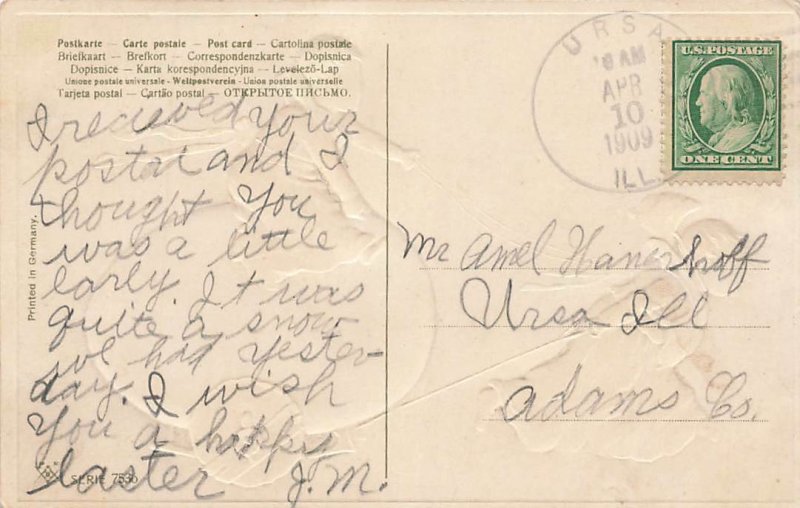 Postkarte — Carte postale — Post card — Cartolina postale
Briefkaart — Brefkort — Correspondenzkarte — Dopisnica
Dopisnice — Karta korespondencyjna — Levelező-Lap
Unione postale universale - Weltpostverein - Union postale universelle
Tarjeta postal — Cartão postal — ОТКРЫТОЕ ПИСЬМО.
I recieved your
postal and I
thought you
was a little
early. It was
quite a snow
we had yester-
day. I wish
you a happy
Easter J.M.
Printed in Germany.
SERIE 7530
URSA
AM
APR
10
1909
ILL.
U.S. POSTAGE
ONE CENT
Mr Amel
Ursa Ill
Adams Co.